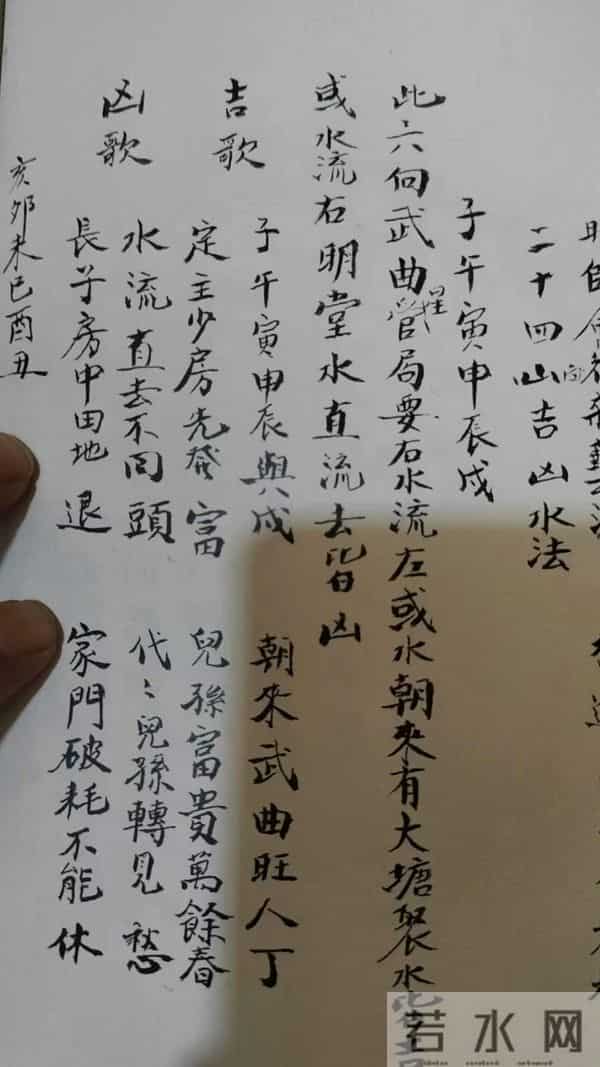 二十四山吉凶水法
子午寅申辰戌
此六向武曲星管局要右水流左或水朝來有大塘聚水皆吉
或水流右明堂水直流去皆凶
吉歌
子午寅申辰與戌 朝來武曲旺人丁
定主少房先發富 兒孫富貴萬餘春
凶歌
水流直去不回頭 代〻兒孫轉見愁
長子房中田地退 家門破耗不能休
亥卯未巳酉丑
若水网